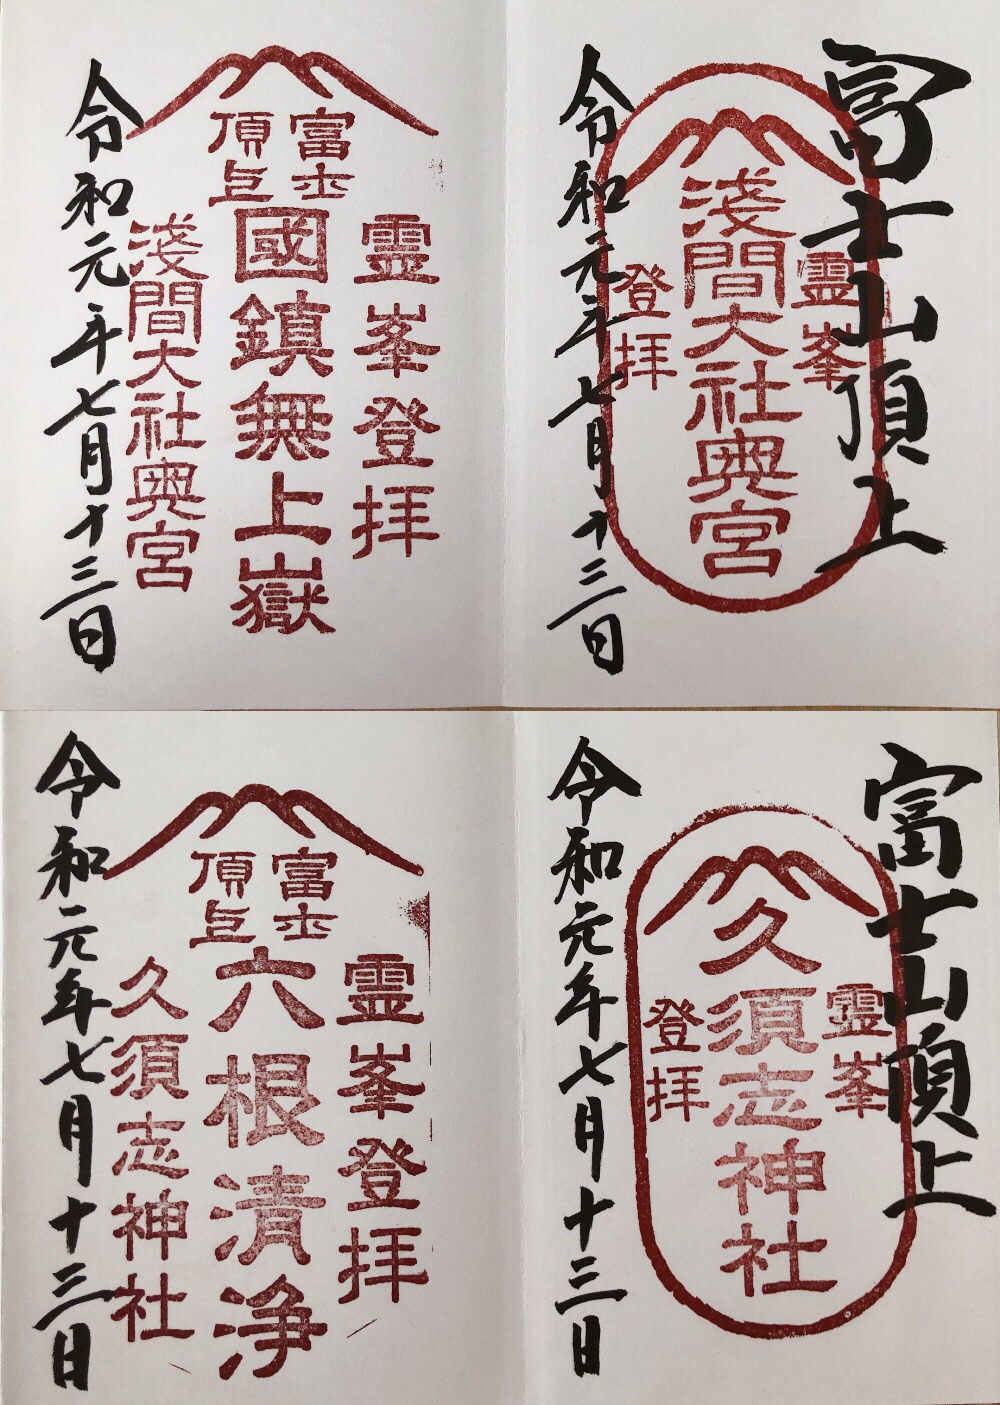 富士山頂上
霊峯
淺間大社奥宮
登拝
令和元年七月十三日
富士
頂上
霊峯登拝
國鎮無上嶽
淺間大社奥宮
令和元年七月十三日
富士山頂上
霊峯
久須志神社
登拝
令和元年七月十三日
富士
頂上
霊峯登拝
六根清浄
久須志神社
令和元年七月十三日